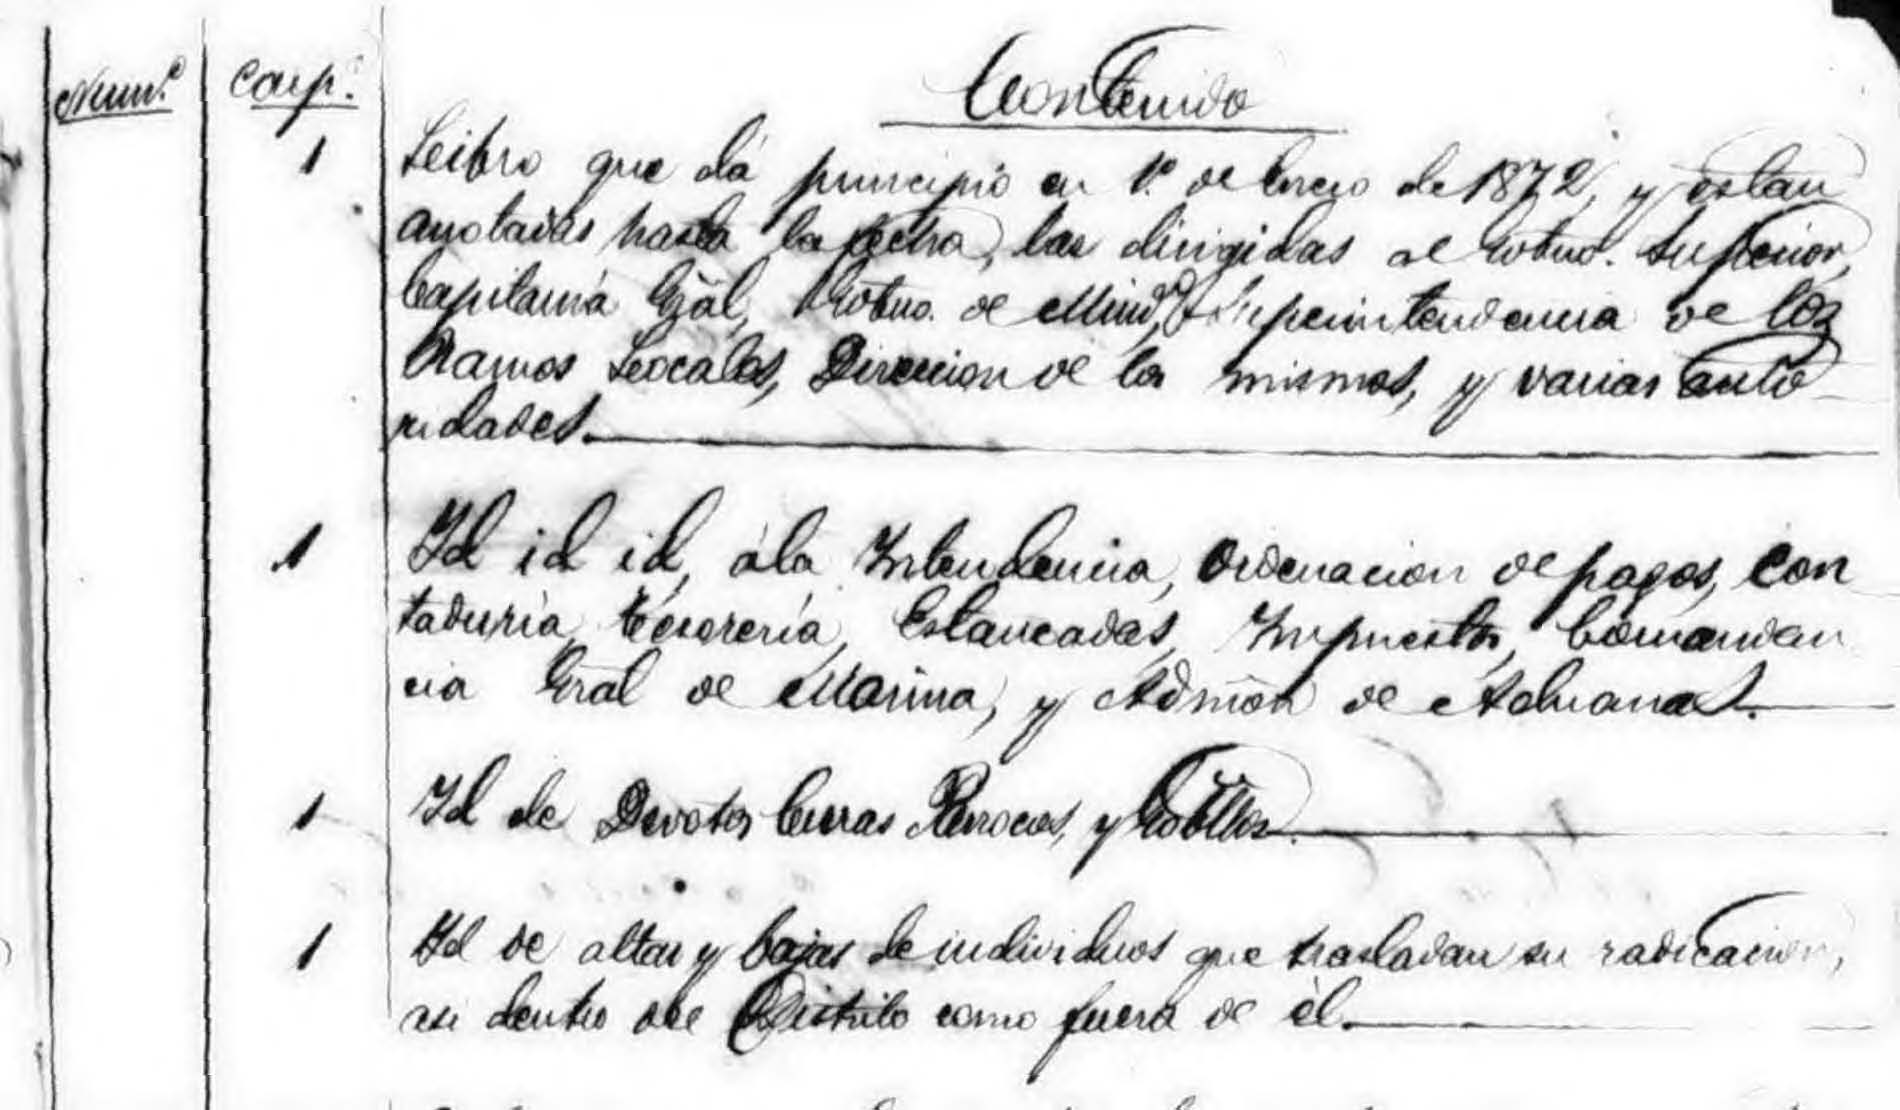 Num.º Carp.ª Contenido
1 Libro que dá principio en 1.º de Enero de 1872, y estan
anotadas hasta la fecha, las dirigidas al Gobno. Superior,
Capitanía Gral, Gobno. de Mind.º, Superintendencia de los
Ramos Locales, Direccion de los mismos, y varias auto
ridades.
1 Id id id, á la Intendencia, Ordenacion de pagos, Con
taduría, Tesorería, Estancadas, Impuestos, Comandan
cia Gral de Marina, y Admon de Aduanas.
1 Id de Devotos Curas Párrocos, y Gobllos.
1 Id de altas y bajas de individuos que trasladan su radicacion,
asi dentro del Distrito como fuera de él.